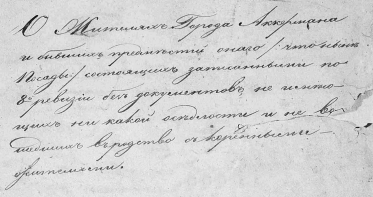 О Жителяхъ Города Аккермана
и бывшихъ предмѣстій онаго /: что нынѣ
Посадъ :/ состоящихъ записанными по
8й ревизіи безъ документовъ не имѣю-
щихъ ни какой осѣдлости и не во-
шедшихъ въ родство съ коренными
жителями.